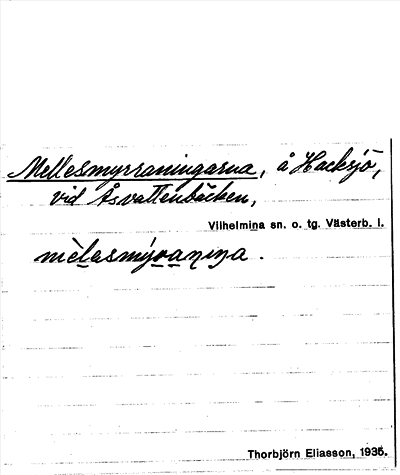 Mellesmyrraningarna, å Hacksjö,
vid Åsvattenbäcken,
Vilhelmina sn. o. tg. Västerb. l.
mèlasmýraniŋa.
Thorbjörn Eliasson, 1935.